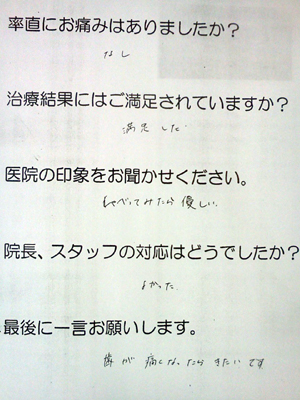 率直にお痛みはありましたか？
なし
治療結果にはご満足されていますか？
満足した
医院の印象をお聞かせください。
しゃべってみたら優しい.
院長、スタッフの対応はどうでしたか？
よかった
最後に一言お願いします。
歯が痛くなったらきたいです